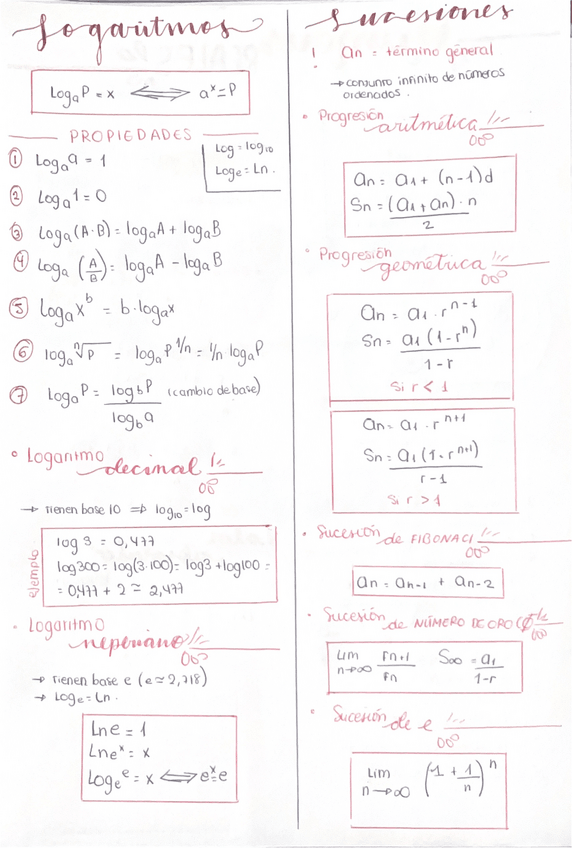 Logaritmos
Log_a P = x ⟺ a^x = P
PROPIEDADES
Log = log₁₀
Log_e = Ln.
① Log_a a = 1
② Log_a 1 = 0
③ Log_a (A·B) = log_a A + log_a B
④ Log_a (A/B) = log_a A - log_a B
⑤ Log_a x^b = b·log_a x
⑥ log_a ⁿ√P = log_a P^1/n = 1/n·log_a P
⑦ Log_a P = log_b P / log_b a (cambio de base)
° Logaritmo decimal
→ tienen base 10 ⇒ log₁₀ = log
ejemplo
log 3 = 0,477
log 300 = log(3·100) = log3 + log100 =
= 0,477 + 2 ≃ 2,477
° Logaritmo neperiano
→ tienen base e (e ≃ 2,718)
→ Log_e = Ln.
Ln e = 1
Ln e^x = x
Log_e e = x ⟺ e^x = e
Sucesiones
! an = término general
→ conjunto infinito de números
ordenados.
• Progresión aritmética
an = a1 + (n-1)d
Sn = (a1 + an)·n / 2
• Progresión geométrica
an = a1 · r^n-1
Sn = a1 (1 - r^n) / 1 - r
Si r < 1
an = a1 · r^n+1
Sn = a1 (1 - r^n+1) / r - 1
Si r > 1
• Sucesión de FIBONACI
an = an-1 + an-2
• Sucesión de NÚMERO DE ORO (ϕ)
Lim n→∞ rn+1 / rn S∞ = a1 / 1-r
° Sucesión de e
Lim n→∞ (1 + 1/n)^n